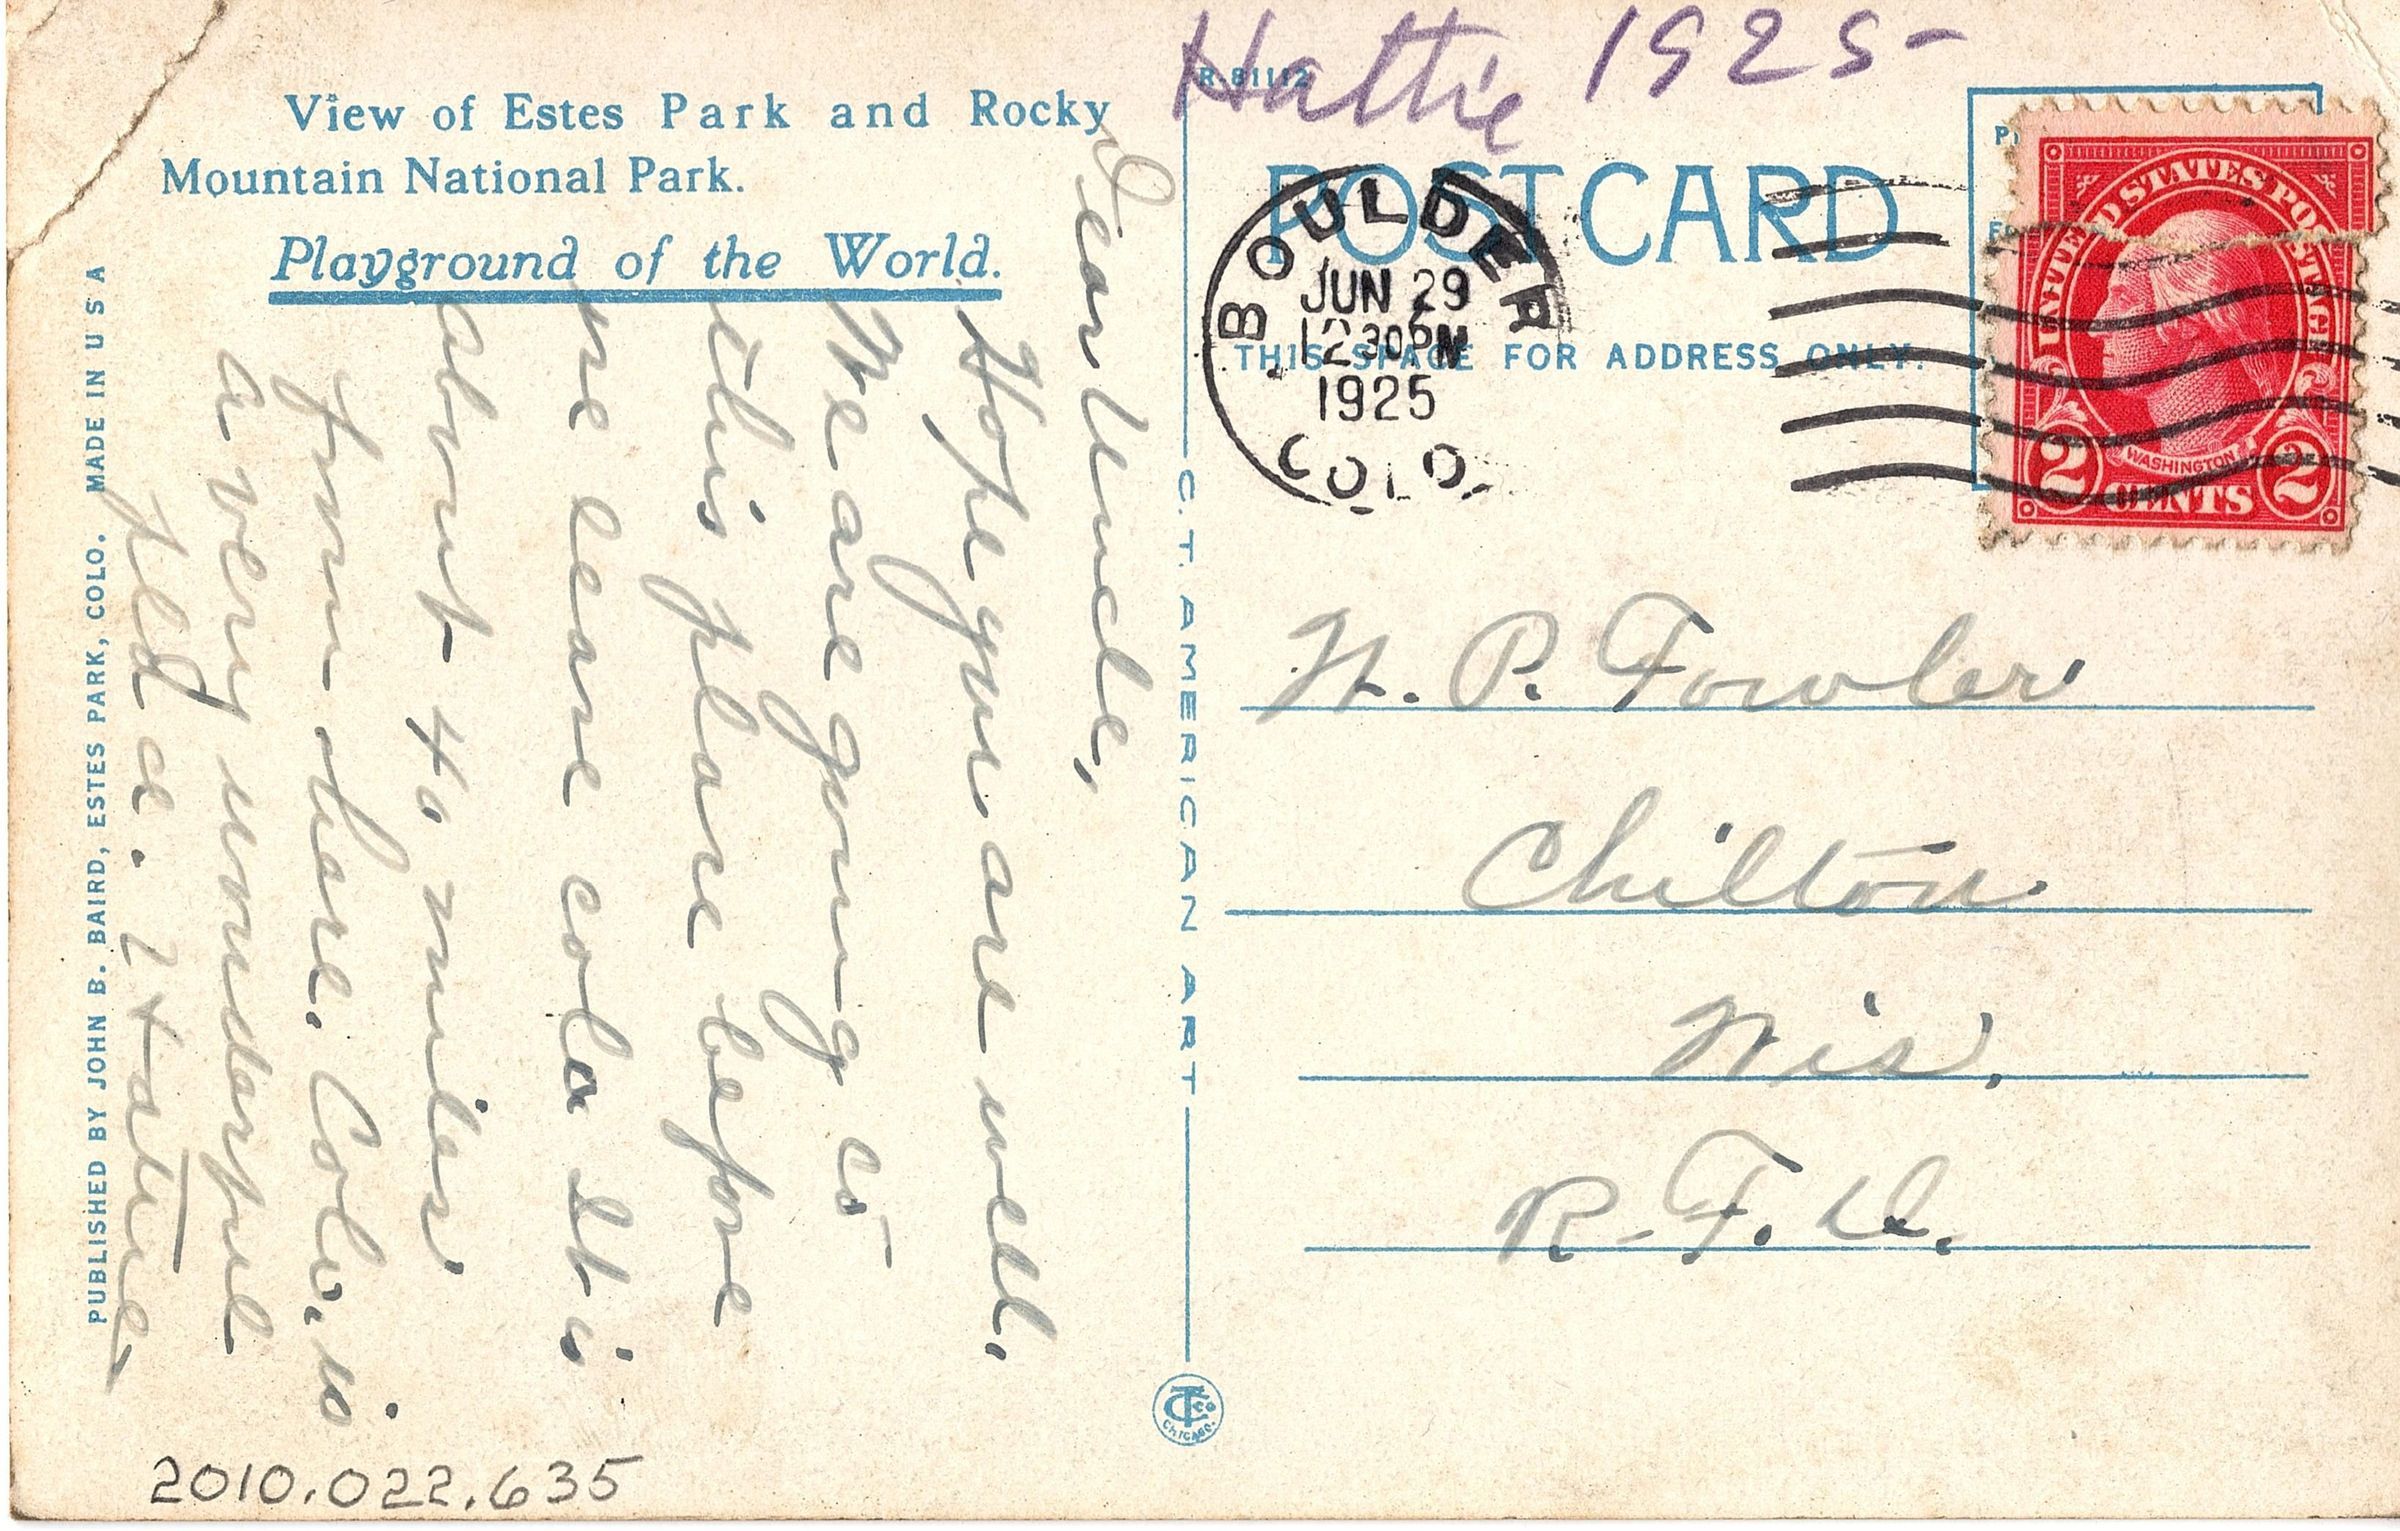 Hattie 1925
R-81112
View of Estes Park and Rocky
Mountain National Park.
Playground of the World.
POST CARD
THIS SPACE FOR ADDRESS ONLY.
BOULDER
JUN 29
12 30 PM
1925
COLO.
UNITED STATES POSTAGE
WASHINGTON
2 CENTS 2
Dear Uncle,
Hope you are well.
We are going to
this place before
we leave colo It is
about 40 miles
from here. Colo. is
a very wonderful
place. Hattie
W. P. Fowler
Chilton
Wis.
R.F.D.
C.T. AMERICAN ART
CT Co
CHICAGO.
PUBLISHED BY JOHN B. BAIRD, ESTES PARK, COLO. MADE IN U S A
2010.022.635